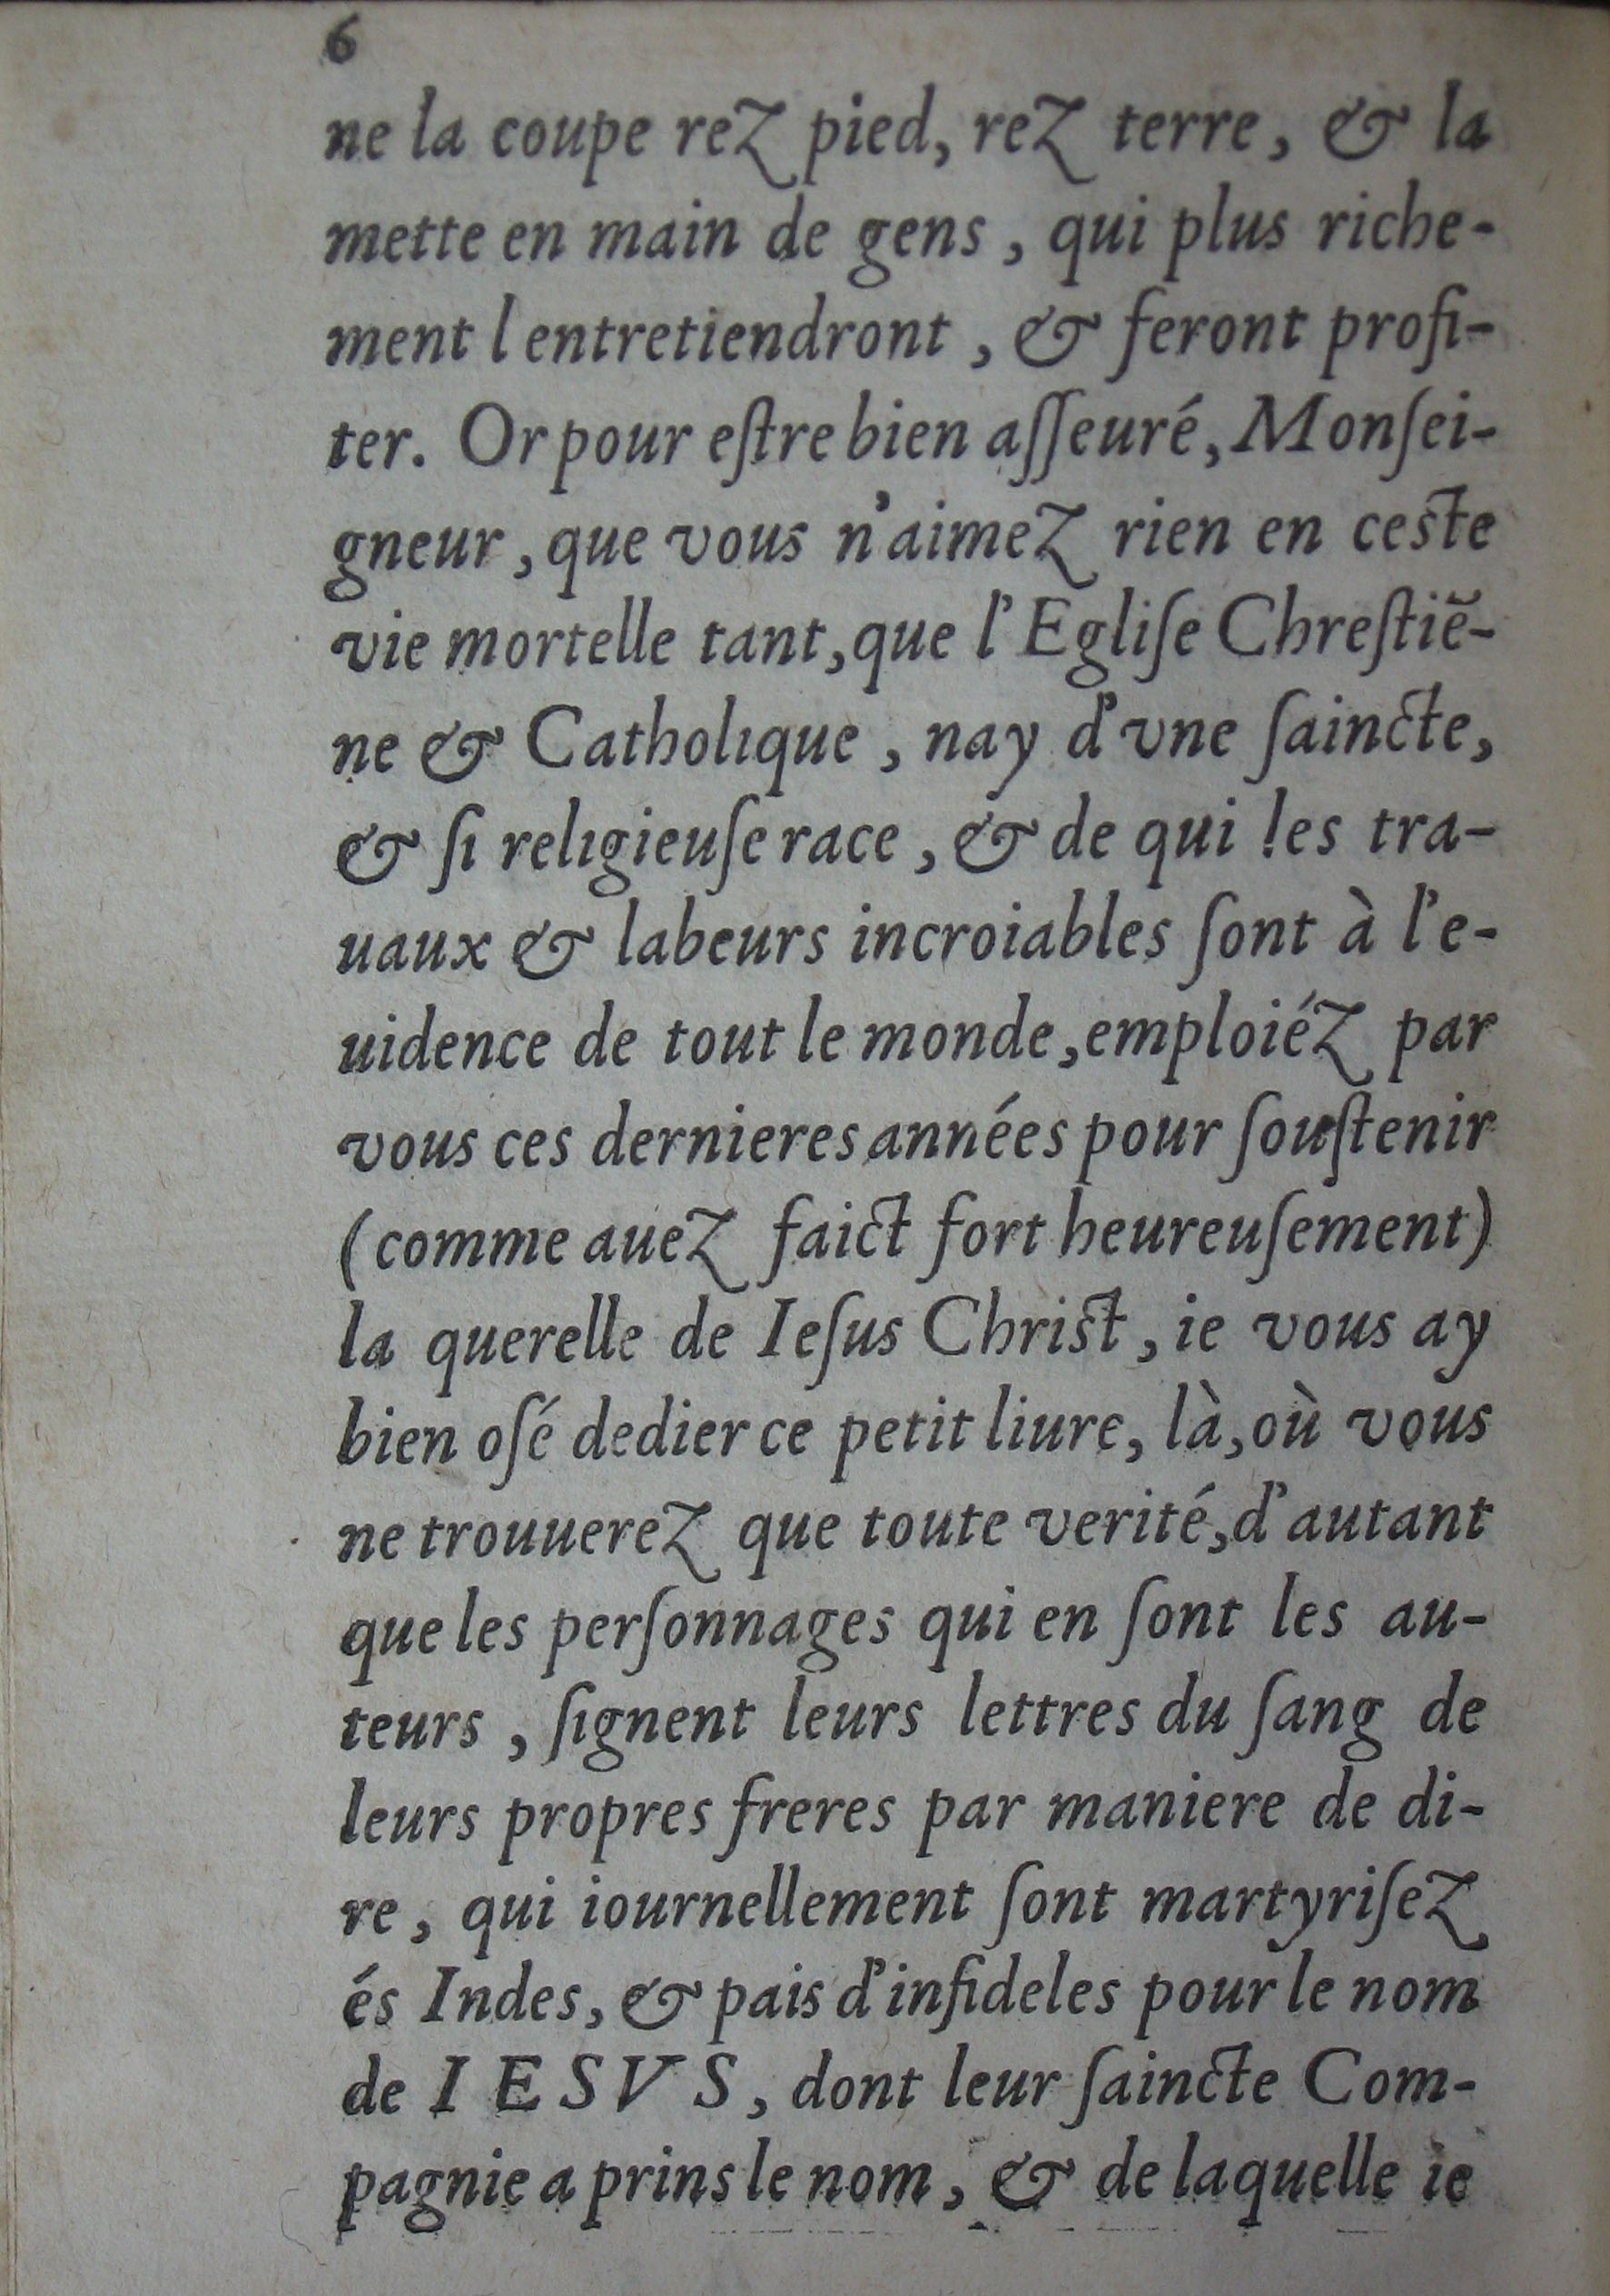 6
ne la coupe rez pied, rez terre, & la
mette en main de gens, qui plus riche-
ment l entretiendront, & feront profi-
ter. Or pour eſtre bien aſſeuré, Monſei-
gneur, que vous n'aimez rien en ceſte
vie mortelle tant, que l'Egliſe Chreſtiẽ-
ne & Catholique, nay d'vne ſaincte,
& ſi religieuſe race, & de qui les tra-
uaux & labeurs incroiables ſont à l'e-
uidence de tout le monde, emploiéz par
vous ces dernieres années pour ſouſtenir
(comme auez faict fort heureuſement)
la querelle de Ieſus Chriſt, ie vous ay
bien oſé dedier ce petit liure, là, où vous
ne trouuerez que toute verité, d'autant
que les perſonnages qui en ſont les au-
teurs, ſignent leurs lettres du ſang de
leurs propres freres par maniere de di-
re, qui iournellement ſont martyriſez
és Indes, & pais d'infideles pour le nom
de IESVS, dont leur ſaincte Com-
pagnie a prins le nom, & de laquelle ie